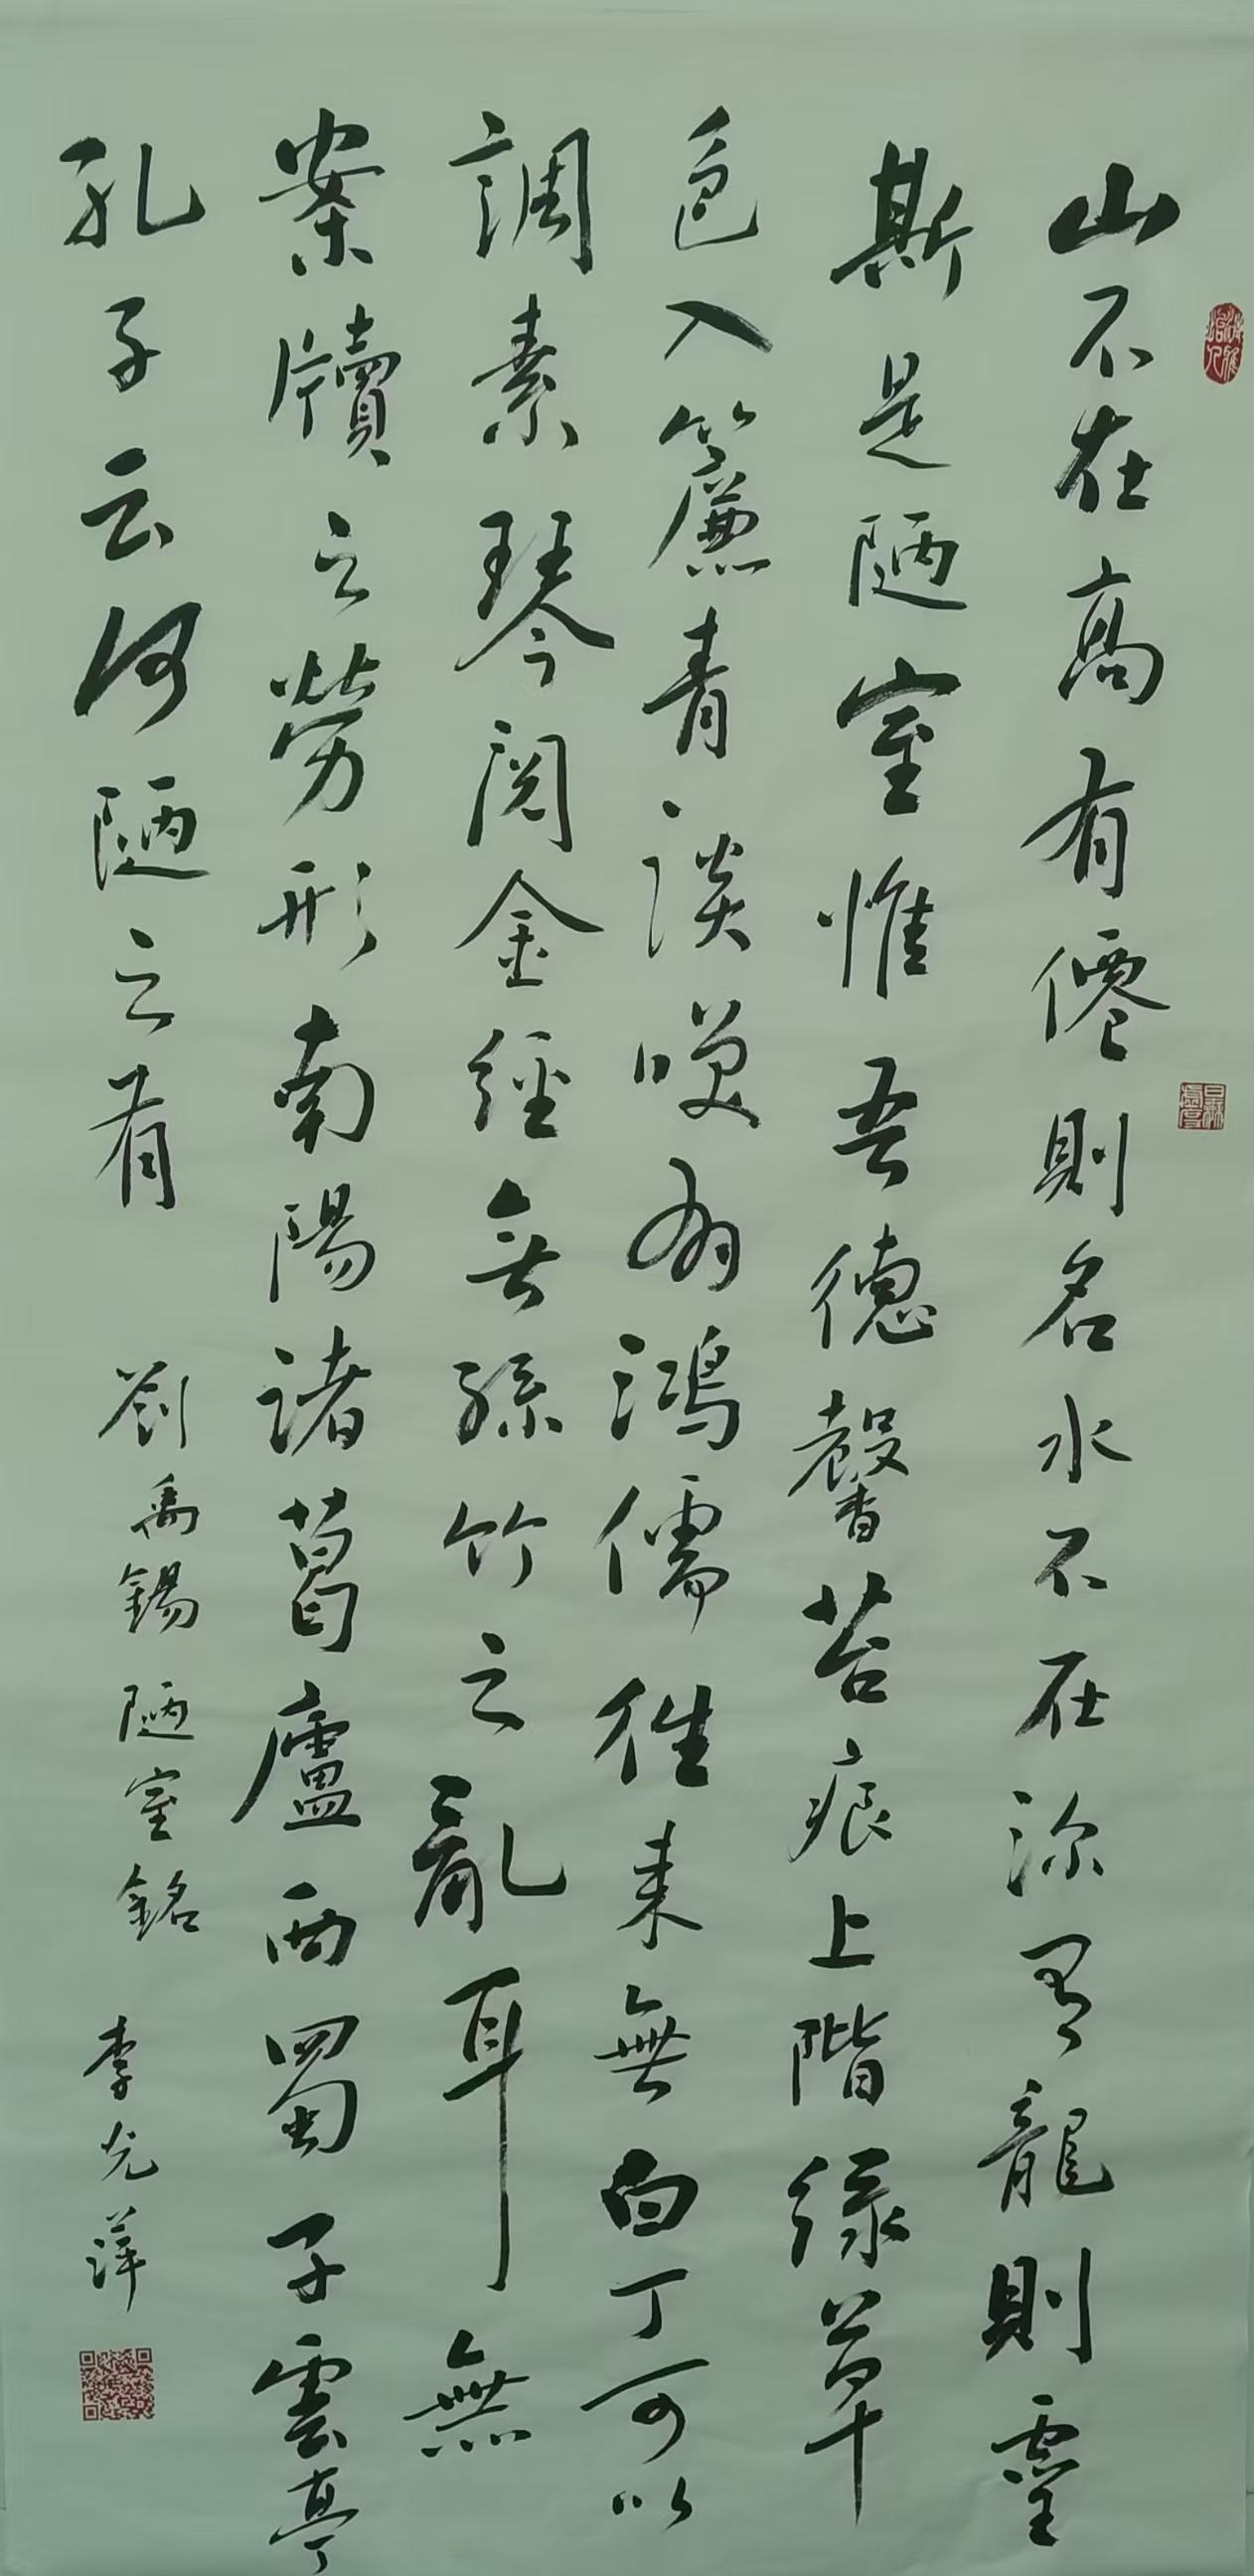 山不在高有僊則名水不在深有龍則靈
斯是陋室惟吾德馨苔痕上階緑草
色入簾青談笑有鴻儒往来無白丁可以
調素琴閱金經無絲竹之亂耳無
案牘之勞形南陽諸葛廬西蜀子雲亭
孔子云何陋之有
劉禹錫陋室銘
李光萍